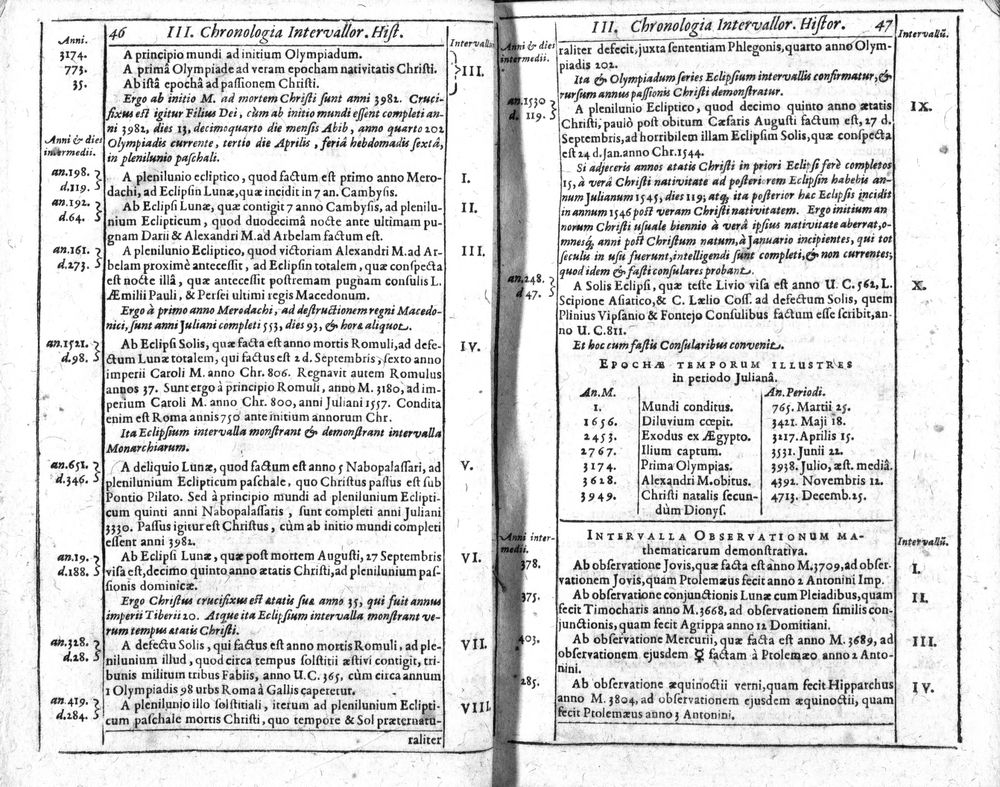 46 III. Chronologia Intervallor. Hist.
Anni.
Intervallor
3174. A principio mundi ad initium Olympiadum.
773. A primâ Olympiade ad veram epocham nativitatis Christi. III.
35. Ab istâ epochâ ad passionem Christi.
Ergo ab initio M. ad mortem Christi sunt anni 3982. Cruci-
fixus est igitur Filius Dei, cùm ab initio mundi essent completi an-
ni 3982, dies 13, decimoquarto die mensis Abib, anno quarto 202
Olympiadis currente, tertio die Aprilis, feriâ hebdomadis sextâ,
in plenilunio paschali.
Anni & dies
intermedii.
an.198. A plenilunio ecliptico, quod factum est primo anno Mero- I.
d.119. dachi, ad Eclipsin Lunæ, quæ incidit in 7 an. Cambysis.
an.192. Ab Eclipsi Lunæ, quæ contigit 7 anno Cambysis, ad plenilu- II.
d.64. nium Eclipticum, quod duodecimâ nocte ante ultimam pu-
gnam Darii & Alexandri M. ad Arbelam factum est.
an.161. A plenilunio Ecliptico, quod victoriam Alexandri M. ad Ar- III.
d.273. belam proximè antecessit, ad Eclipsin totalem, quæ conspecta
est nocte illâ, quæ antecessit postremam pugnam consulis L.
Æmilii Pauli, & Persei ultimi regis Macedonum.
Ergo à primo anno Merodachi, ad destructionem regni Macedo-
nici, sunt anni Juliani completi 553, dies 93, & horæ aliquot.
an.1521. Ab Eclipsi Solis, quæ facta est anno mortis Romuli, ad defe- IV.
d.98. ctum Lunæ totalem, qui factus est 2 d. Septembris, sexto anno
imperii Caroli M. anno Chr. 806. Regnavit autem Romulus
annos 37. Sunt ergo à principio Romuli, anno M. 3180, ad im-
perium Caroli M. anno Chr. 800, anni Juliani 1557. Condita
enim est Roma annis 750 ante initium annorum Chr.
Ita Eclipsium intervalla monstrant & demonstrant intervalla
Monarchiarum.
an.651. A deliquio Lunæ, quod factum est anno 5 Nabopalassari, ad V.
d.346. plenilunium Eclipticum paschale, quo Christus passus est sub
Pontio Pilato. Sed à principio mundi ad plenilunium Eclipti-
cum quinti anni Nabopalassaris, sunt completi anni Juliani
3330. Passus igitur est Christus, cùm ab initio mundi completi
essent anni 3982.
an.19. Ab Eclipsi Lunæ, quæ post mortem Augusti, 27 Septembris VI.
d.188. visa est, decimo quinto anno ætatis Christi, ad plenilunium pas-
sionis dominicæ.
Ergo Christus crucifixus est ætatis suæ anno 35, qui fuit annus
imperii Tiberii 20. Atque ita Eclipsium intervalla monstrant ve-
rum tempus ætatis Christi.
an.328. A defectu Solis, qui factus est anno mortis Romuli, ad ple- VII.
d.28. nilunium illud, quod circa tempus solstitii æstivi contigit, tri-
bunis militum tribus Fabiis, anno U.C. 365, cùm circa annum
1 Olympiadis 98 urbs Roma à Gallis caperetur.
an.419. A plenilunio illo solstitiali, iterum ad plenilunium Eclipti- VIII
d.284. cum paschale mortis Christi, quo tempore & Sol præternatu-
raliter
III. Chronologia Intervallor. Histor. 47
Anni & dies
intermedii.
Intervallũ.
raliter defecit, juxta sententiam Phlegonis, quarto anno Olym-
piadis 202.
Ita & Olympiadum series Eclipsium intervallis confirmatur, &
rursum annus passionis Christi demonstratur.
an.1530 A plenilunio Ecliptico, quod decimo quinto anno ætatis IX.
d. 119. Christi, paulò post obitum Cæsaris Augusti factum est, 27 d.
Septembris, ad horribilem illam Eclipsim Solis, quæ conspecta
est 24 d. Jan. anno Chr. 1544.
Si adjeceris annos ætatis Christi in priori Eclipsi ferè completos
15, à verâ Christi nativitate ad posteriorem Eclipsin habebis an-
num Julianum 1545, dies 119; atq; ita posterior hæc Eclipsis incidit
in annum 1546 post veram Christi nativitatem. Ergo initium an-
norum Christi usuale biennio à verâ ipsius nativitate aberrat, o-
mnesq; anni post Christum natum, à Januario incipientes, qui tot
seculis in usu fuerunt, intelligendi sunt completi, & non currentes;
quod idem & fasti consulares probant.
an.248. A Solis Eclipsi, quæ teste Livio visa est anno U.C. 562, L. X.
d 47. Scipione Asiatico, & C. Lælio Coss. ad defectum Solis, quem
Plinius Vipsanio & Fontejo Consulibus factum esse scribit, an-
no U.C. 811.
Et hoc cum fastis Consularibus convenit.
EPOCHÆ TEMPORUM ILLUSTRES
in periodo Julianâ.
An.M. An.Periodi.
1. Mundi conditus. 765. Martii 25.
1656. Diluvium cœpit. 3421. Maji 18.
2453. Exodus ex Ægypto. 3217. Aprilis 15.
2767. Ilium captum. 3531. Junii 22.
3174. Prima Olympias. 3938. Julio, æst. mediâ.
3628. Alexandri M. obitus. 4392. Novembris 12.
3949. Christi natalis secun- 4713. Decemb. 25.
dùm Dionys.
INTERVALLA OBSERVATIONUM MA-
thematicarum demonstrativa.
Anni inter-
medii.
Intervallũ.
378. Ab observatione Jovis, quæ facta est anno M. 3709, ad obser- I.
vationem Jovis, quam Ptolemæus fecit anno 2 Antonini Imp.
375. Ab observatione conjunctionis Lunæ cum Pleiadibus, quam II.
fecit Timocharis anno M. 3668, ad observationem similis con-
junctionis, quam fecit Agrippa anno 12 Domitiani.
403. Ab observatione Mercurii, quæ facta est anno M. 3689, ad III.
observationem ejusdem ☿ factam à Ptolemæo anno 2 Anto-
nini.
285. Ab observatione æquinoctii verni, quam fecit Hipparchus IV.
anno M. 3804, ad observationem ejusdem æquinoctii, quam
fecit Ptolemæus anno 3 Antonini.